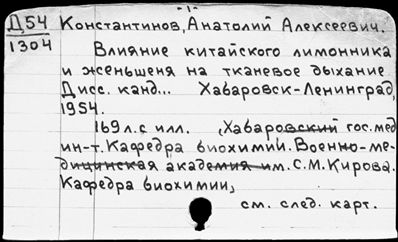 -1-
Д54 Константинов, Анатолий Алексеевич.
1304
Влияние китайского лимонника
и женьшеня на тканевое дыхание
Дисс. канд... Хабаровск-Ленинград,
1954.
169л.с илл. (Хабаровский гос.мед
ин-т. Кафедра биохимии. Военно-ме-
дицинская академия им. С.М.Кирова.
Кафедра биохимии,
см. след. карт.